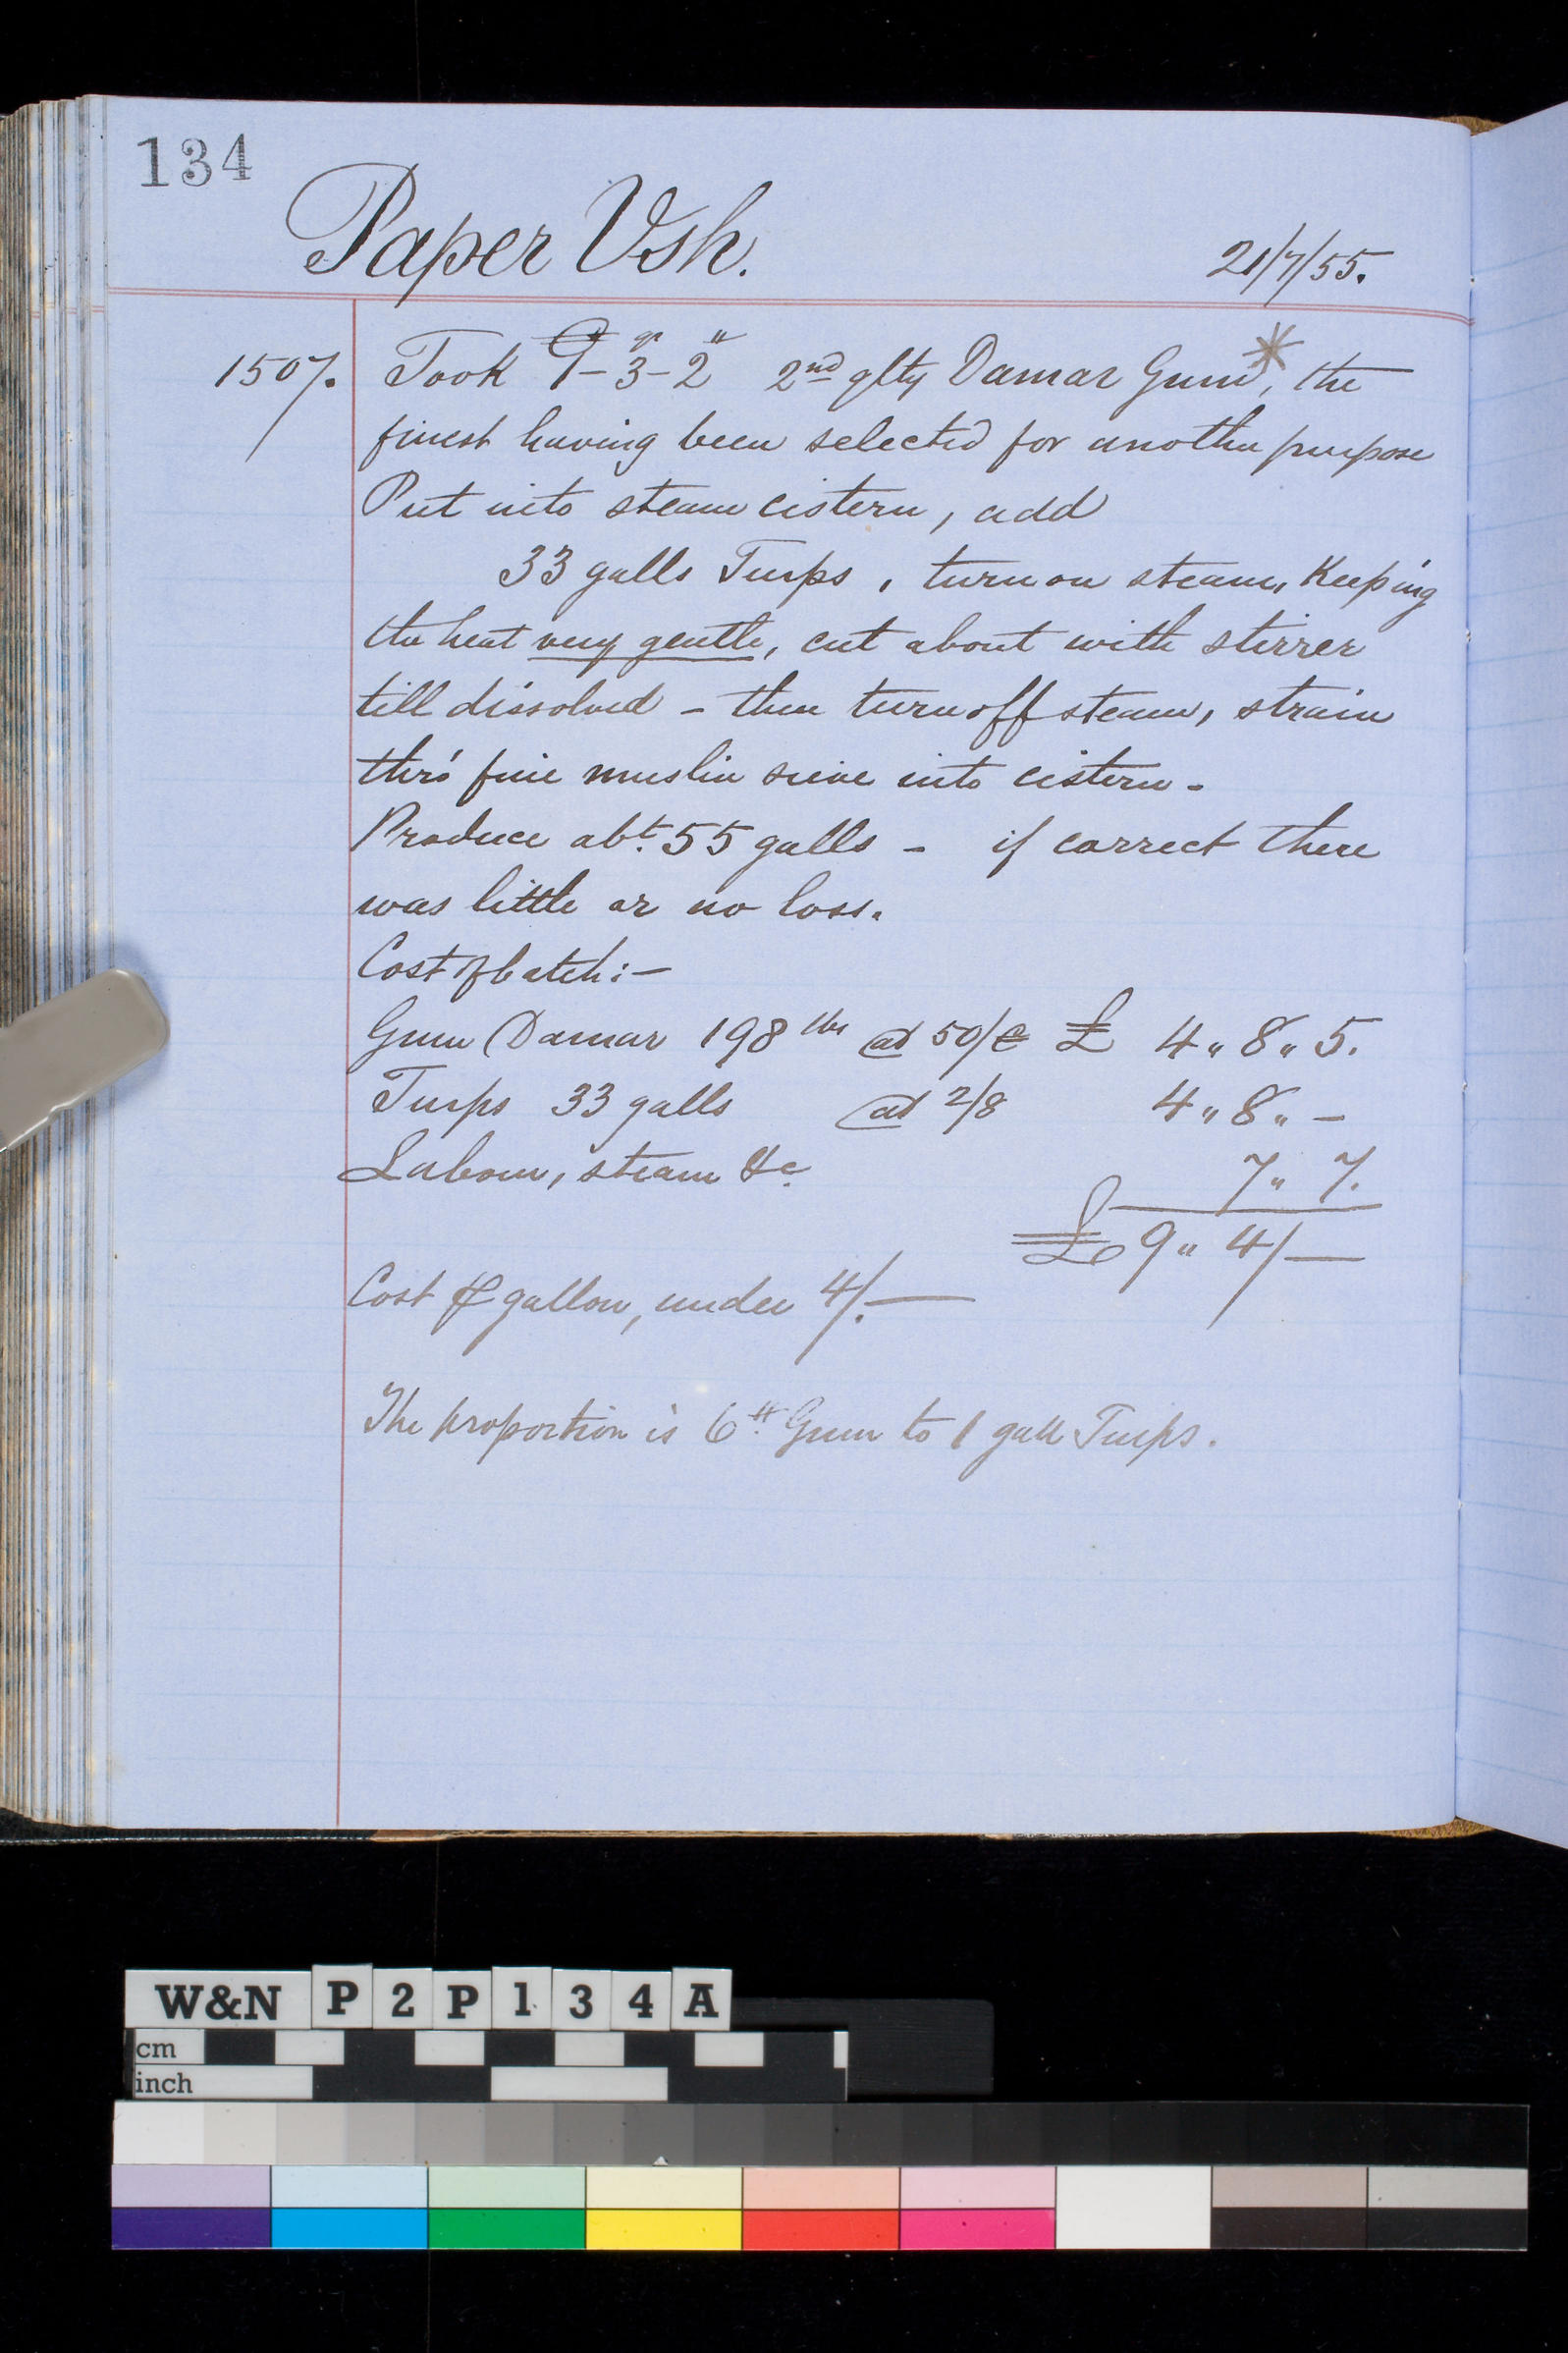 134
Paper Vsh.
21/7/55.
1507. Took 1-3-2 2nd qlty Damar Gum*, the
finest having been selected for another purpose
Put into steam cistern, add
33 galls Turps, turn on steam, Keeping
the heat very gentle, cut about with stirrer
till dissolved - then turn off steam, strain
thro' fine muslin sieve into cistern -
Produce abt. 55 galls - if correct there
was little or no loss.
Cost of batch:-
Gum Damar 198 lbs at 50/ c £ 4 " 8 " 5.
Turps 33 galls at 2/8 4 " 8 " -
Labour, steam &c. 7 " 7.
£ 9 " 4/-
Cost ⅌ gallon, under 4/. -
The proportion is 6 lb. Gum to 1 gall Turps.
W&N P2P134A
cm
inch